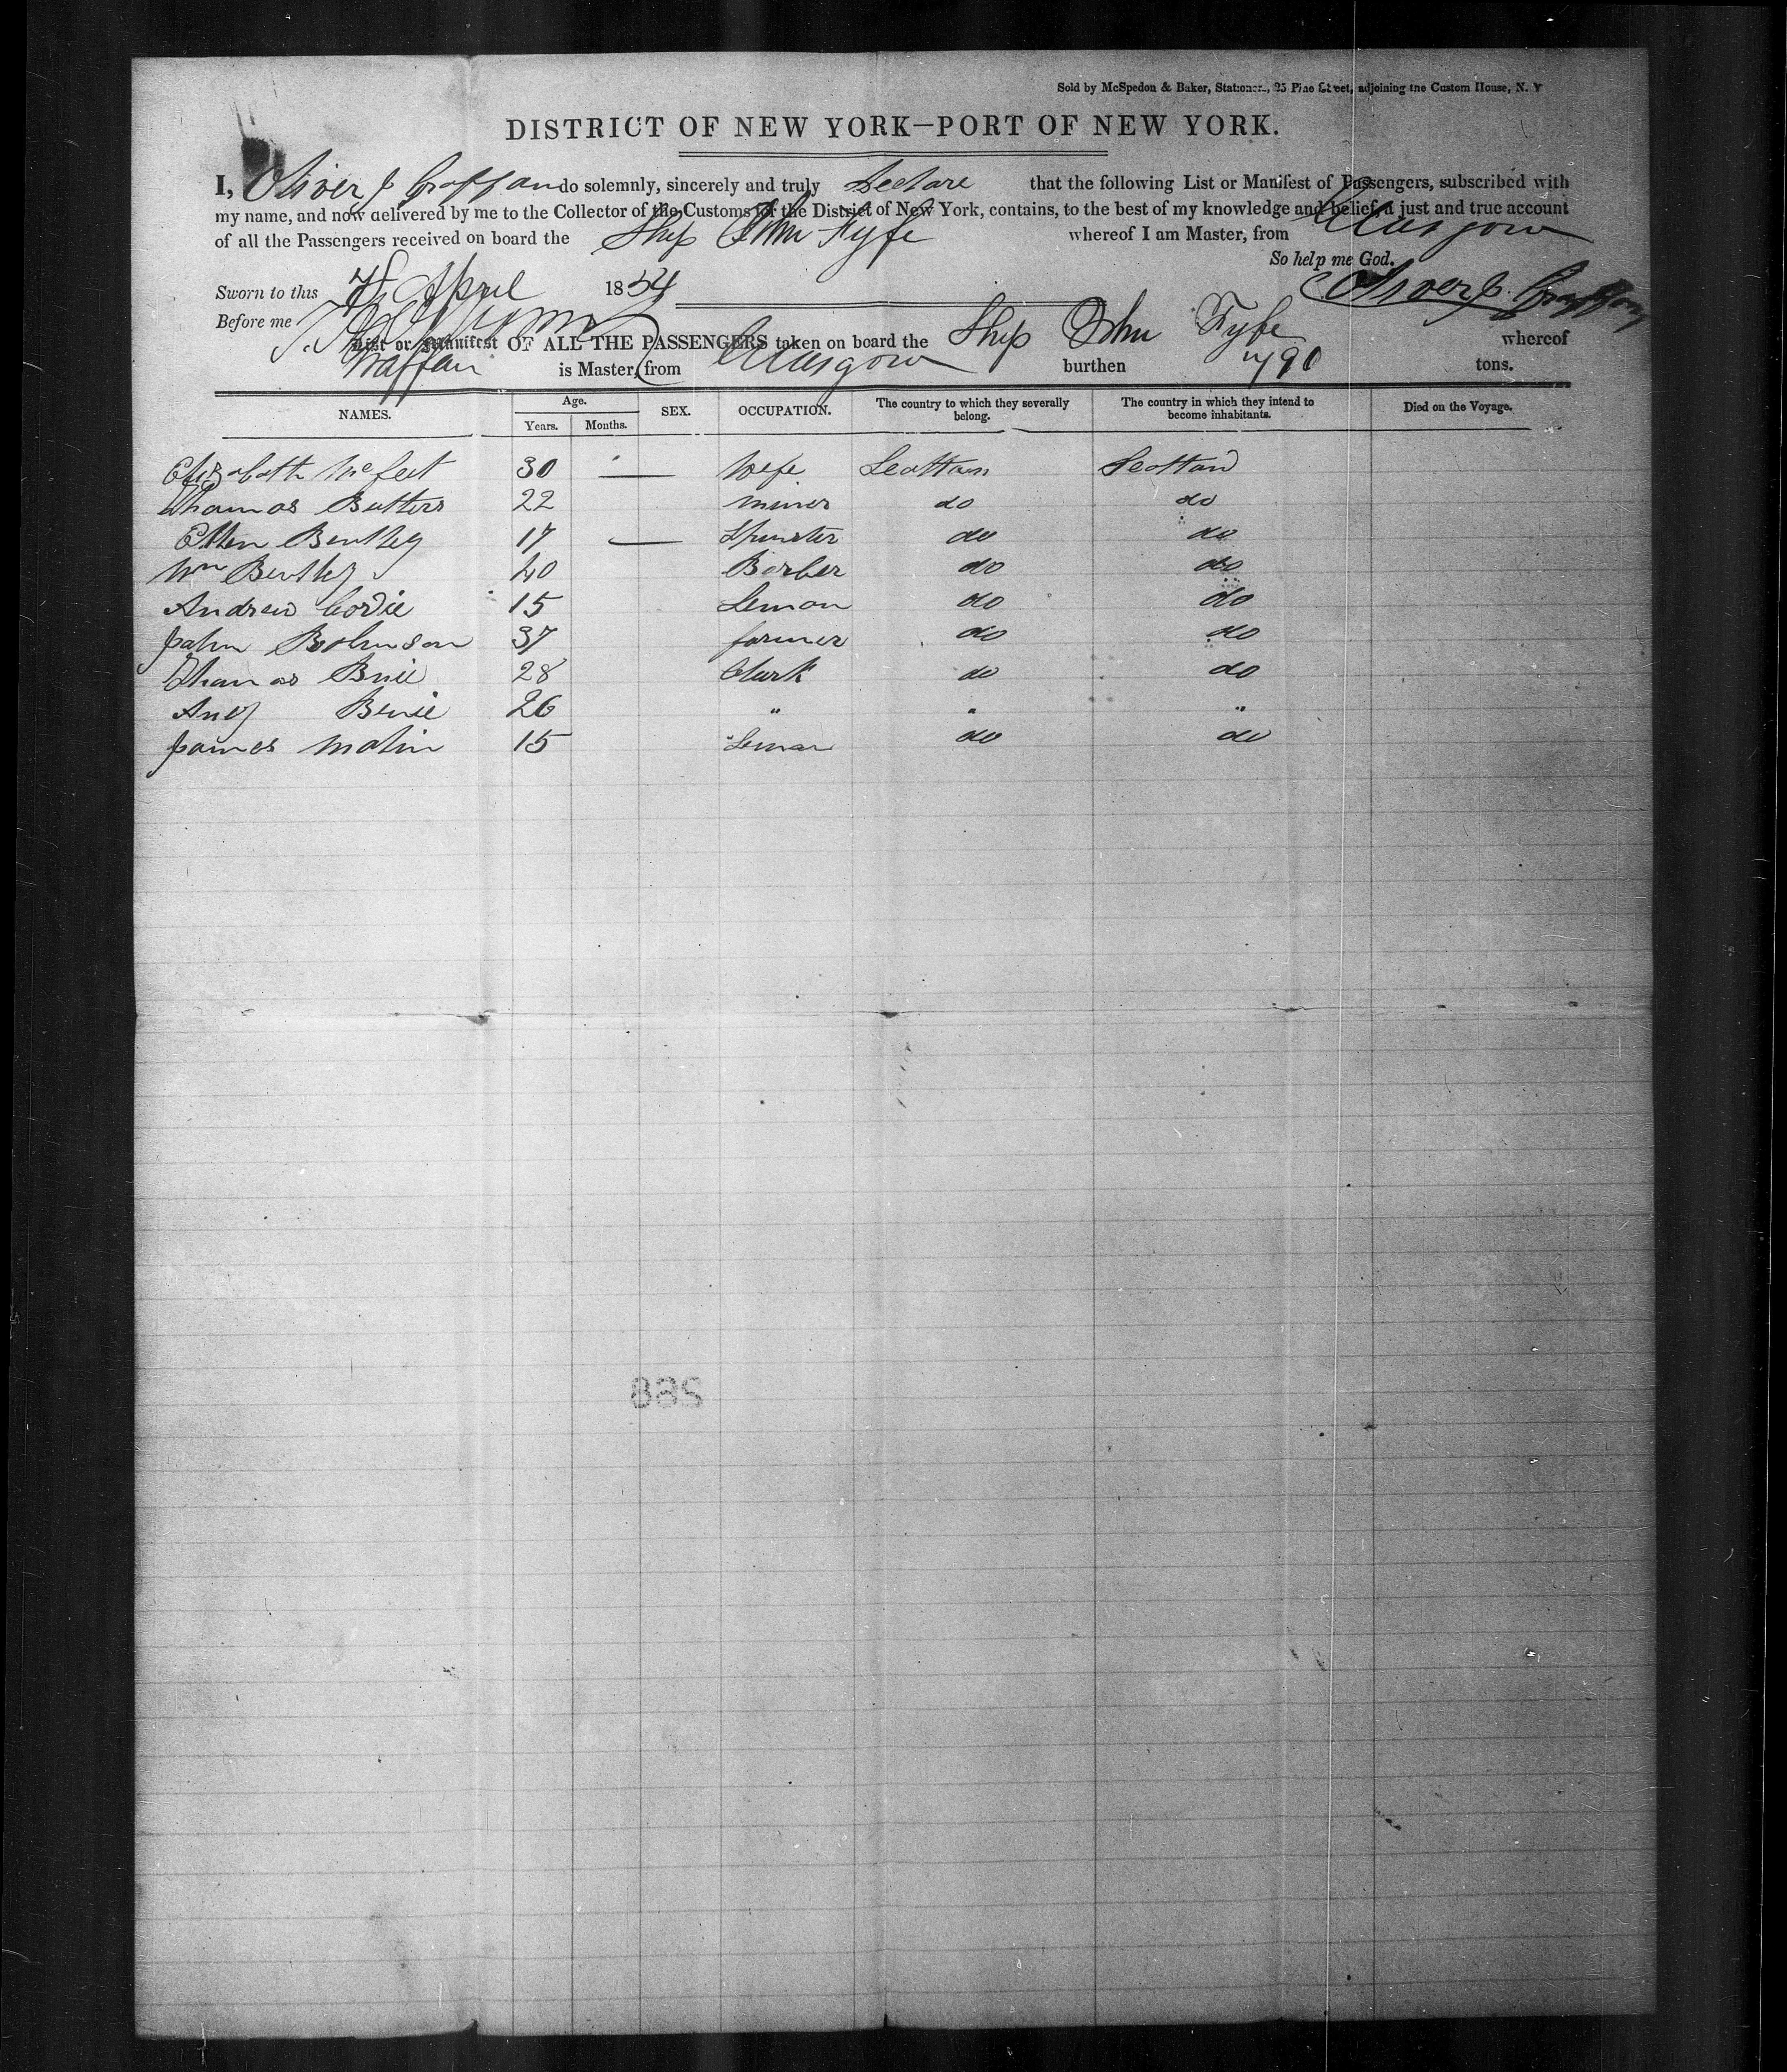 Sold by McSpedon & Baker, Stationers, 25 Pine Street, adjoining the Custom House, N. Y
DISTRICT OF NEW YORK—PORT OF NEW YORK.
I, Oliver J Graffan do solemnly, sincerely and truly declare that the following List or Manifest of Passengers, subscribed with
my name, and now delivered by me to the Collector of the Customs for the District of New York, contains, to the best of my knowledge and belief, a just and true account
of all the Passengers received on board the Ship John Fyfe whereof I am Master, from Glasgow
So help me God.
Sworn to this April 1854
Oliver J. Graffan
Before me
List or Manifest OF ALL THE PASSENGERS taken on board the Ship John Fyfe whereof
Graffan is Master, from Glasgow burthen 790 tons.
NAMES. Age. Years. Months. SEX. OCCUPATION. The country to which they severally belong. The country in which they intend to become inhabitants. Died on the Voyage.
Elizabeth McFeet 30 — Wife Scotland Scotland
Thomas Butters 22 miner do do
Ellen Bentley 17 — Spinster do do
Wm Bentley 40 Barber do do
Andrew Cordie 15 Seman do do
John Robinson 37 farmer do do
Thomas 28 Clark do do
26 " " "
James Malin 15 Seman do do
288